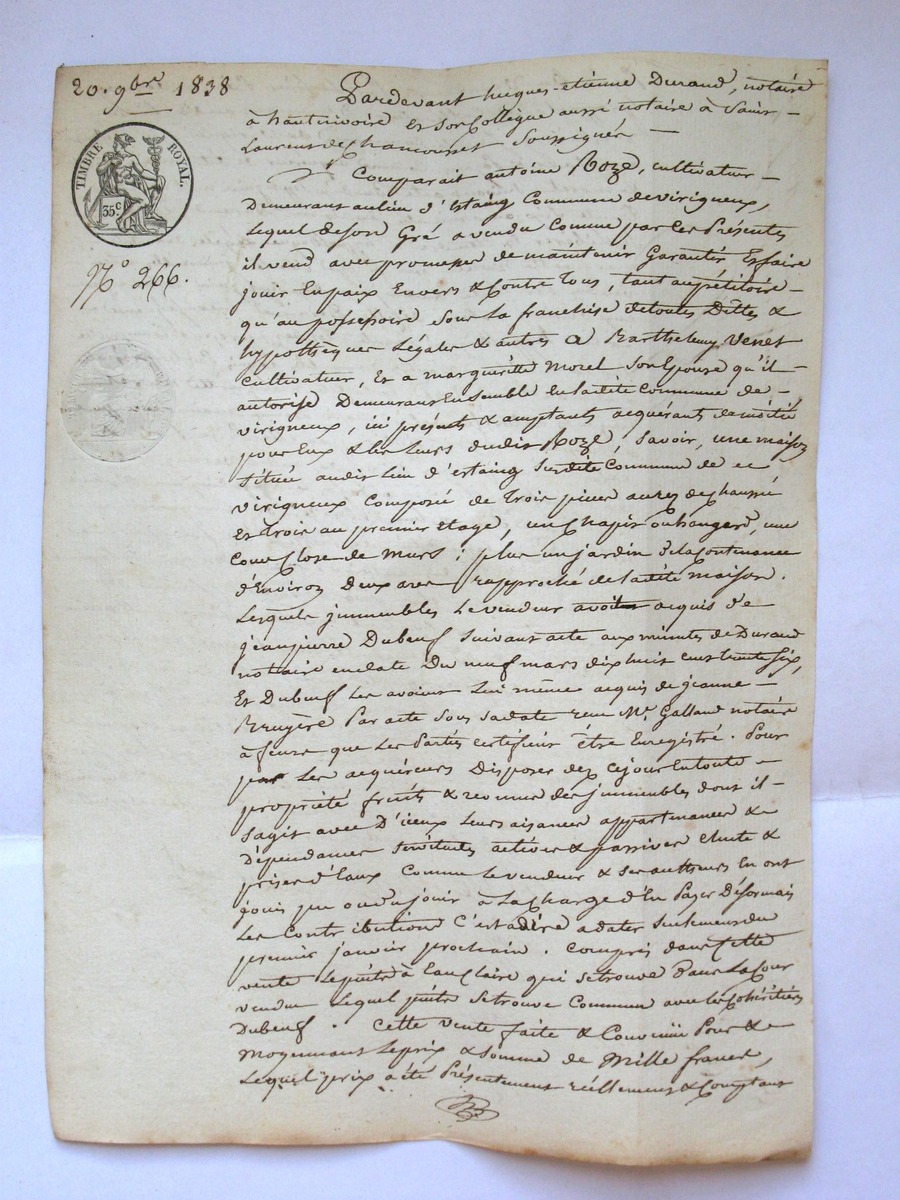 20. 9bre 1838
TIMBRE ROYAL.
35c
No 266.
Pardevant hugues-etiènne Durand, notaire
à hauterivoire et son Collègue aussi notaire à Saint
Laurent de Chamousset Soussignés —
Comparait antoine Rozé, cultivateur —
Demeurant au lieu d'Estaing Commune de virigneux,
Lequel de son Gré a vendu Comme par ces Présentes
il vend avec promesse de maintenir Garantir Et faire
jouir En paix Envers & Contre Tous, tant au pétitoire —
qu'au possessoire Sous la franchise de toutes Dettes &
hypothèques Légales & autres à Barthelemy Venet
Cultivateur, Et a marguéritte Morel Son Epouse qu'il —
autorise Demeurans Ensemble En ladite Commune de —
virigneux, ici présents & acceptants acquerant de moitié
pour Eux & les Leurs dudit Rozé, Savoir, une maison
située audit Lieu d'Estaing Susdite Commune de
virigneux Composé de Trois pièces au rez de chaussé
Et Trois au premier Etage, un Chapit ou hangard, une
Cour Close de Murs ; plus un jardin de la Contenance
d'Environ Deux ares rapproché de ladite maison.
Lesquels jmmeubles Le vendeur avoit acquis de
jean pierre Dubeuf Suivant acte aux minutes de Durand
notaire en date Du neuf mars dix huit cent trente six,
Et Dubeuf Les avoient Lui même acquis de jeanne —
Bruyère Par acte Sous Sa date reçu Me. Galland notaire
à feurs que Les Parties certifient être Enregistré. Pour
par Les acquéreurs Disposer dez ce jour En toute —
propriété fruits & revenus des jmmeubles dont il —
sagit avec D'iceux Leurs aisances appartenances &
Dépendances Servitudes actives & passives chute &
prises d'Eaux Comme Le vendeur & Ses autheurs En ont
joui pu ou du jouir à La Charge d'En Payer Désormais
Les Contributions C'est adire adater Seulement du
premier janvier prochain. Compris dans Cette
vente Le puits à Eau Claire qui Se trouve Dans La Cour
vendue Lequel puits Se trouve Commun avec Les Cohéritiers
Dubeuf. Cette vente faite & Convenüe Pour &
Moyennant Le prix & Somme de Mille francs,
Lequel prix a été Présentement réellement & Comptant